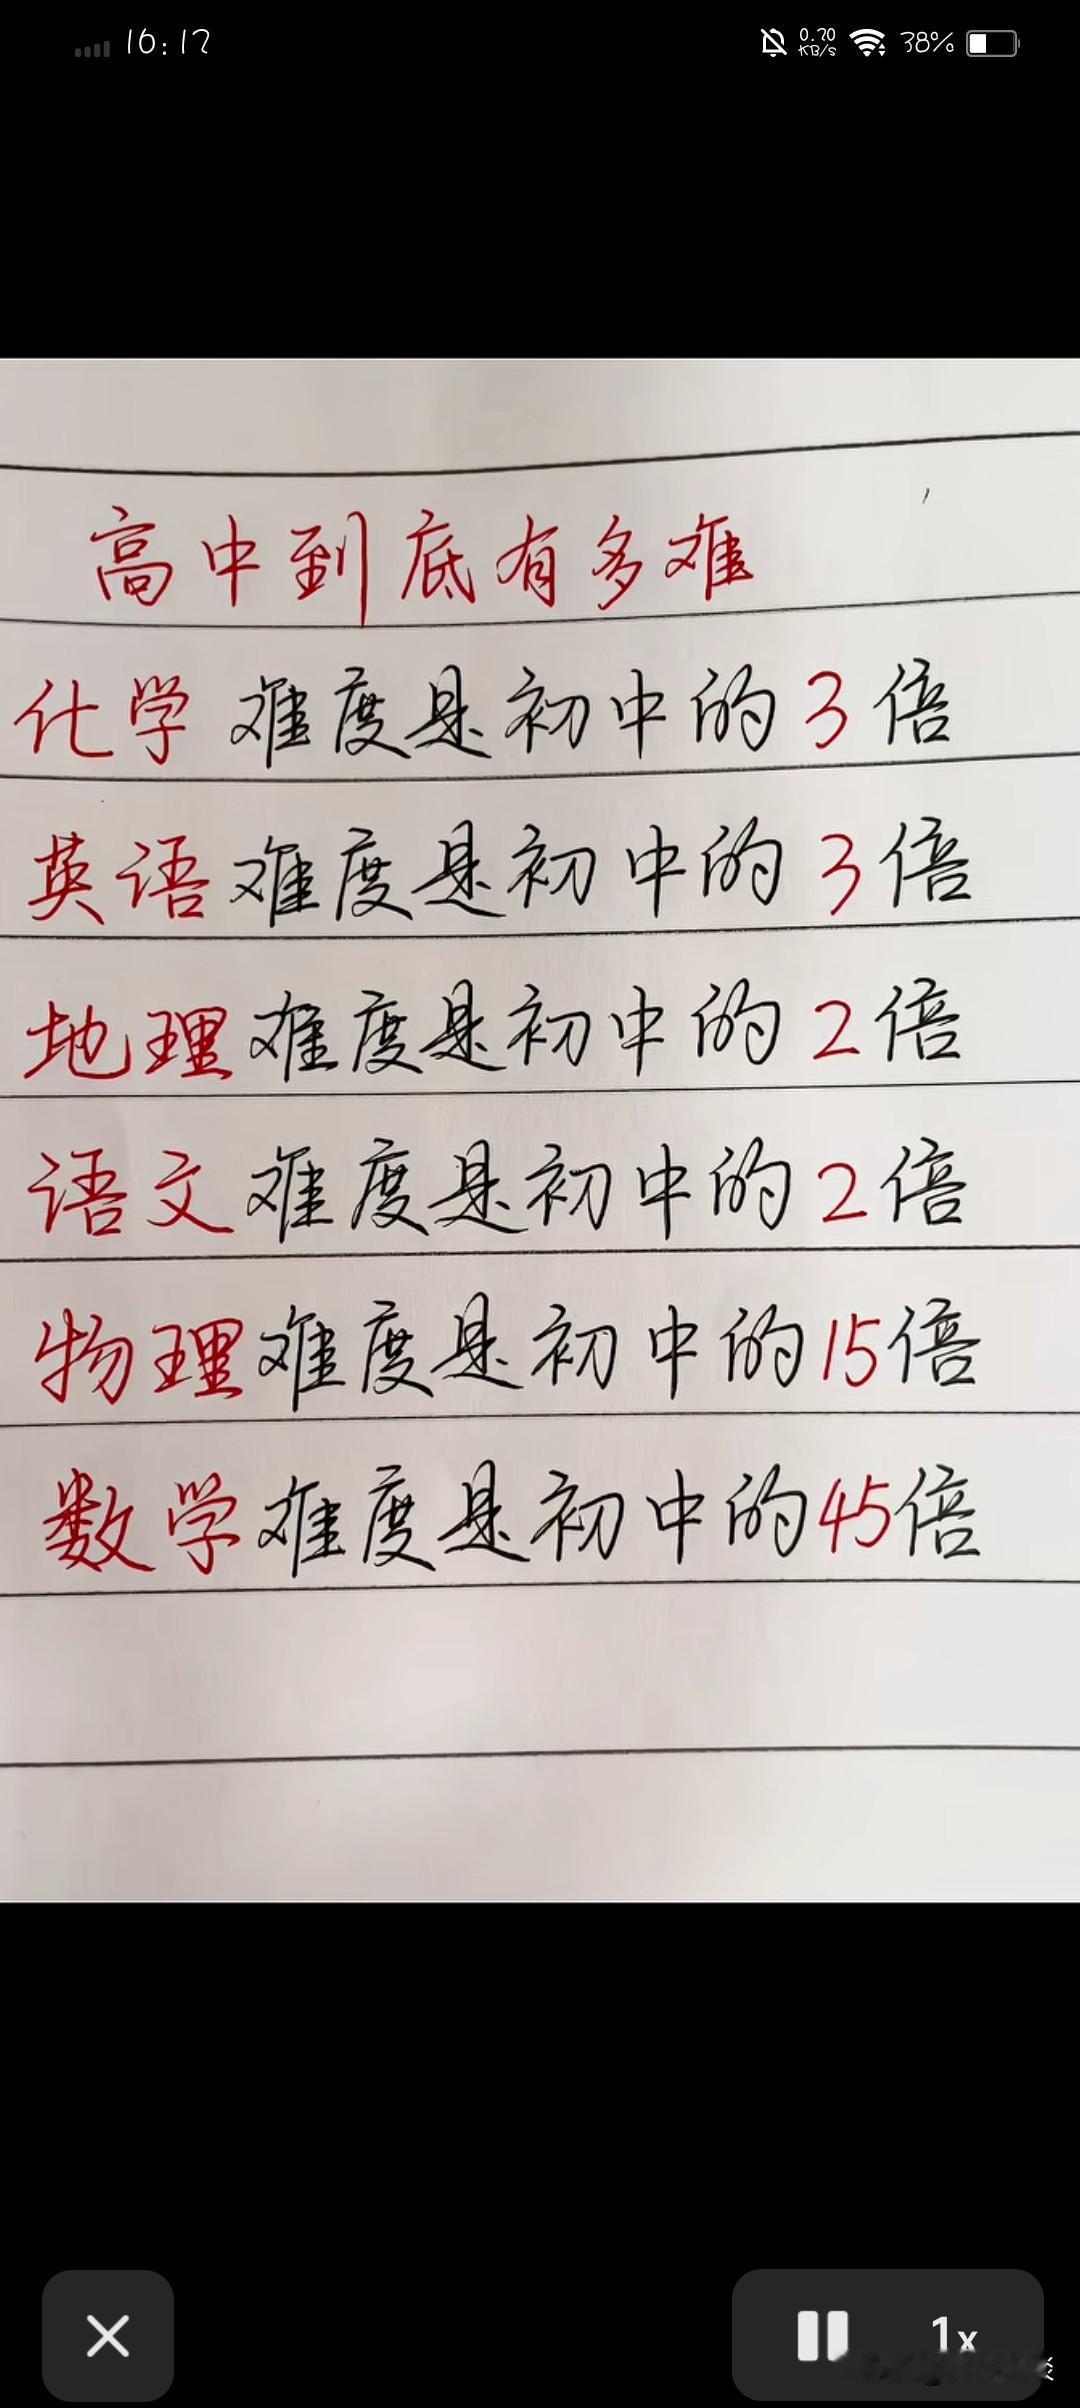 16:17
0.70 KB/s 38%
高中到底有多难
化学难度是初中的3倍
英语难度是初中的3倍
地理难度是初中的2倍
语文难度是初中的2倍
物理难度是初中的15倍
数学难度是初中的45倍
1x